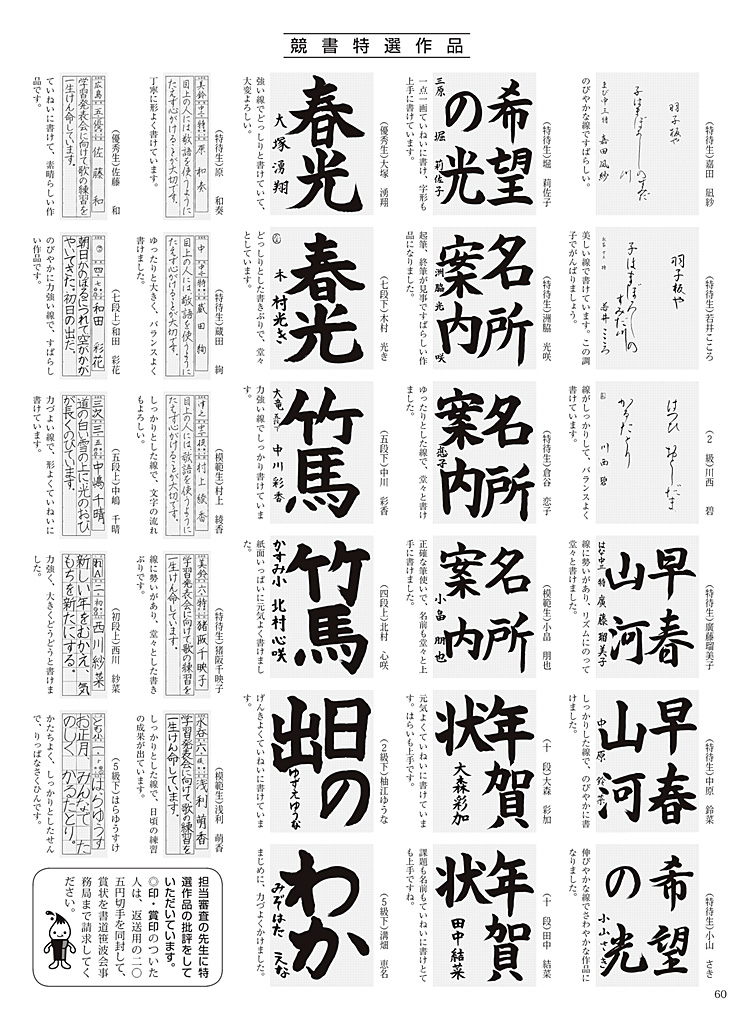 競書特選作品
(特待生)嘉田 凪紗
羽子板や
子はまぼろしの
すみだ川
嘉田凪紗
のびやかな線ですばらしい。
(特待生)若井こころ
羽子板や
子はまぼろしの
すみだ川
若井こころ
美しい線で書けています。この調
子でがんばりましょう。
(2 級)川西 碧
川西碧
線がしっかりして、バランスよく
書けています。
(特待生)廣藤瑠美子
早春
山河
廣藤瑠美子
線に勢いがあり、リズムにのって
堂々と書けました。
(特待生)中原 鈴菜
早春
山河
中原鈴菜
しっかりした線で、のびやかに書
けました。
(特待生)小山 さき
希望
の光
小山さき
伸びやかな線でさわやかな作品に
なりました。
(特待生)堀 莉佐子
希望
の光
三原 堀 莉佐子
一点一画ていねいに書け、字形も
上手に書けています。
(特待生)洲脇 光咲
名所
案内
洲脇光咲
起筆、終筆が見事ですばらしい作
品になりました。
(特待生)倉谷 恋子
名所
案内
恋子
ゆったりとした線で、堂々と書け
ました。
(模範生)小畠 朋也
名所
案内
小畠朋也
正確な筆使いで、名前も堂々と上
手に書けました。
(十 段)大森 彩加
年賀
状
大森彩加
元気よくていねいに書けていま
す。はらいも上手です。
(十 段)田中 結菜
年賀
状
田中結菜
課題も名前もていねいに書けとて
も上手ですね。
(優秀生)大塚 湧翔
春光
大塚湧翔
強い線でどっしりと書けていて、
大変よろしい。
(七段下)木村 光き
春光
木村光き
どっしりとした書きぶりで、堂々
としています。
(五段下)中川 彩香
竹馬
中川彩香
力強い線でしっかり書けていま
す。
(四段上)北村 心咲
竹馬
かすみ小 北村心咲
紙面いっぱいに元気よく書けまし
た。
(2級下)柚江ゆうな
日の
出
ゆずえゆうな
げんきよくていねいに書けていま
す。
(5級下)溝畑 恵名
わか
みぞはた えな
まじめに、力づよくかけました。
(特待生)原 和奏
美鈴 中三 特 原 和奏
目上の人には敬語を使うように
たえず心がけることが大切です。
丁寧に形よく書けています。
(特待生)蔵田 絢
蔵田 絢
目上の人には敬語を使うように
たえず心がけることが大切です。
ゆったりと大きく、バランスよく
書けました。
(模範生)村上 綾香
村上綾香
目上の人には敬語を使うように
たえず心がけることが大切です。
しっかりとした線で、文字の流れ
もよろしい。
(特待生)猪阪千映子
美鈴 六 特 猪阪千映子
学習発表会に向けて歌の練習を
一生けん命しています。
線に勢いがあり、堂々とした書き
ぶりです。
(模範生)浅利 萌香
水呑 六 浅利萌香
学習発表会に向けて歌の練習を
一生けん命しています。
しっかりとした線で、日頃の練習
の成果が出ています。
(優秀生)佐藤 和
広島 五 優 佐藤 和
学習発表会に向けて歌の練習を
一生けん命しています。
ていねいに書けて、素晴らしい作
品です。
(七段上)和田 彩花
和田 彩花
朝日がのぼるにつれて空がかが
やいてきた。初日の出だ。
のびやかに力強い線で、すばらし
い作品です。
(五段上)中嶋 千晴
中嶋千晴
道の白い雪の上に光のおび
が長くのびています。
力づよい線で、形よくていねいに
書けています。
(初段上)西川 紗菜
西川紗菜
新しい年をむかえ、気
もちを新たにする。
力強く、大きくどうどうと書けま
した。
(5級下)はらゆうすけ
はらゆうすけ
お正月、みんなでた
のしく かるたとり。
かたちよく、しっかりとしたせん
で、りっぱなさくひんです。
担当審査の先生に特
選作品の批評をして
いただいています。
◎印・賞印のついた
人は、返送用の一一〇
五円切手を同封して、
賞状を書道笹波会事
務局まで請求してく
ださい。
60